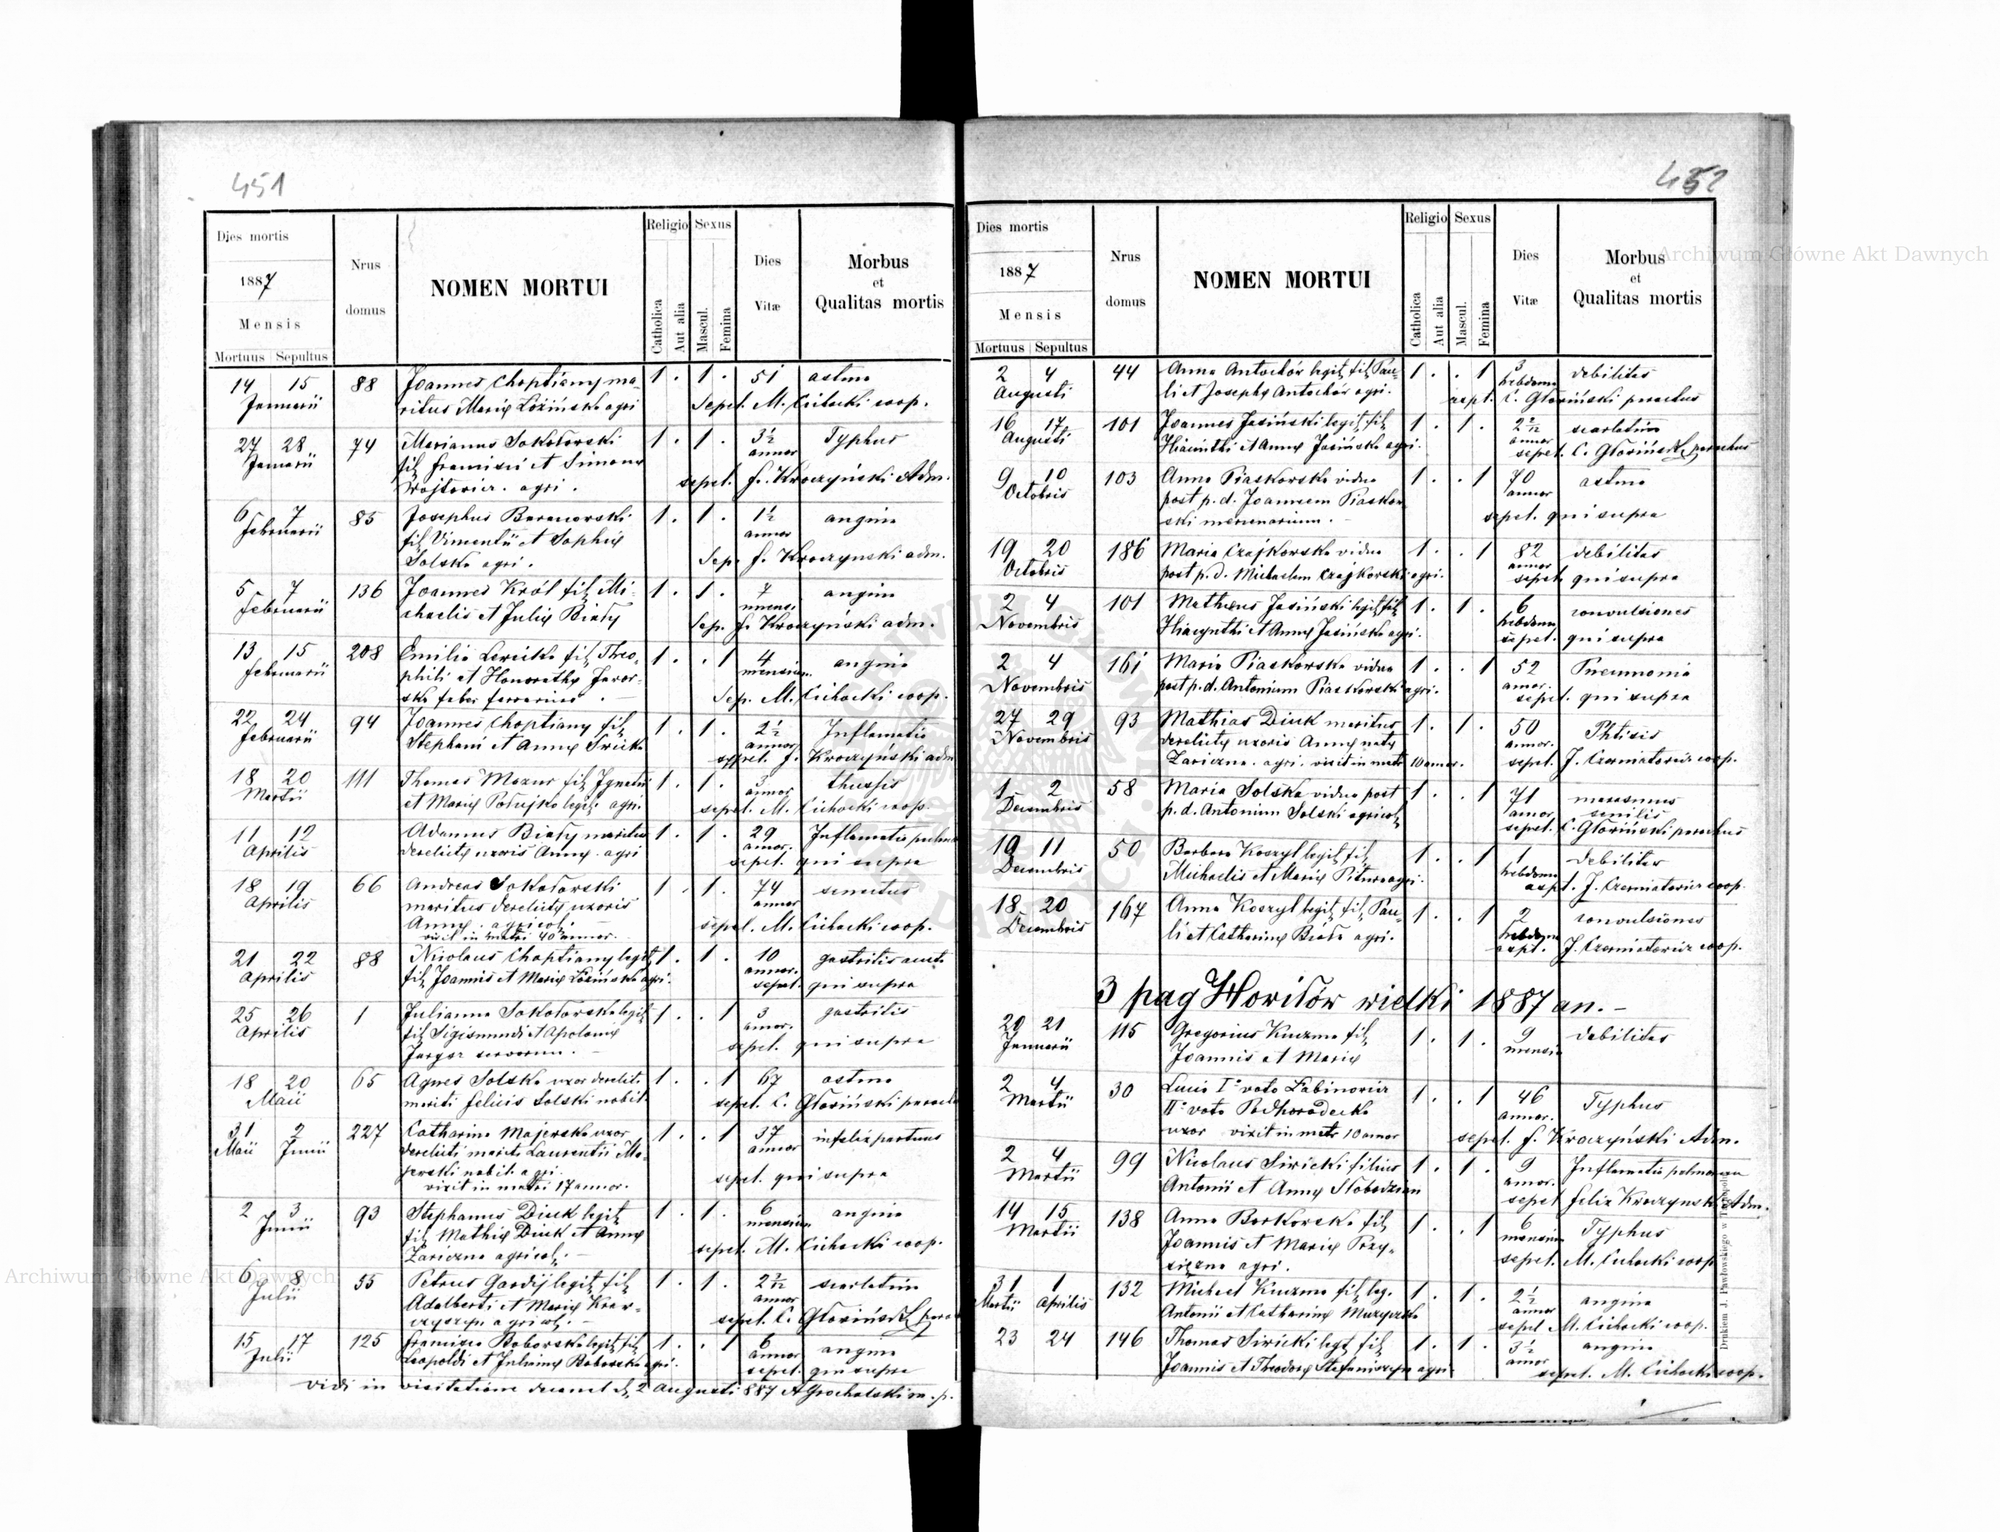 451
Dies mortis
1887
Mensis
Mortuus Sepultus
Nrus domus
NOMEN MORTUI
Religio
Catholica
Aut alia
Sexus
Mascul.
Femina
Dies Vitæ
Morbus et Qualitas mortis
14 15 88 Joannes Choptiany ma- 1 . 1 . 51 astma
Januarii ritus Mariæ Łozińska agri Sepel. M. Cichocki coop.
27 28 74 Marianus Sokołowski 1 . 1 . 3½ Typhus
Januarii fil. Francisci et Simona annor
Wojtowicz . agri . sepel. f. Kroczyński Adm.
6 7 85 Josephus Baranowski 1 . 1 . 1½ angina
Februarii fil. Vincentii et Sophiæ annor
Solska agri . Sep. f. Kroczynski adm.
5 7 136 Joannes Król fil. Mi- 1 . 1 . 7 angina
Februarii chaelis et Juliæ Biały mensi
Sep. f. Kroczynski adm.
13 15 208 Emilia fil. Theo- 1 . . 1 4 angina
Februarii phili et Honorathæ Jawor- mensium
ska faber ferrarius . Sep. M. Cichocki coop.
22 24 94 Joannes Choptiany fil. 1 . 1 . 2½ Inflamatio
Februarii Stephani et Annæ annor
sepel. f. Kroczyński adm
18 20 111 Thomas Mazur fil. Ignatii 1 . 1 . 3 thussis
Martii et Mariæ legit. agri annor
sepel. M. Cichocki coop.
11 12 Adamus Biały maritus 1 . 1 . 29 Inflamatio pulmon
Aprilis derelictæ uxoris Annæ . agri annor.
sepel. qui supra
18 19 66 Andreas Sokołowski 1 . 1 . 74 senectus
Aprilis maritus derelictæ uxoris annor
Annæ . agricol. sepel. M. Cichocki coop.
vixit in matri 40 annor.
21 22 88 Nicolaus Choptiany legit. 1 . 1 . 10 gastritis acuta
Aprilis fil. Joannis et Mariæ Łozińska agri. annor.
sepel. qui supra
25 26 1 Julianna Sokołowska legit 1 . . 1 3 gastritis
Aprilis fil. Sigismundi et Apolonia annor.
sepel. qui supra
18 20 65 Agnes Solska uxor derelicti 1 . . 1 67 astma
Maii mariti Felicis Solski nobil. sepel. C. Głowiński paroch
31 2 227 Catharina Majewska uxor 1 . . 1 37 infelix partus
Maii Junii derelicti mariti Laurentii Ma- annor
jewski nobil. agri. sepel. qui supra
vixit in matri 17 annor.
2 3 93 Stephanus Diuk legit. 1 . 1 . 6 angina
Junii fil. Mathiæ Diuk et Annæ mensium
Zariczna agricol. sepel. M. Cichocki coop.
6 8 55 Petrus legit. fil. 1 . 1 . 2 scarlatina
Julii Adalberti et Mariæ Kraw- annor
czyszyn agricol. sepel. C. Głowiński paroch
15 17 125 Francisca Boborska legit. fil. 1 . . 1 6 angina
Julii Leopoldi et Julianæ Boborska agri. annor
sepel. qui supra
Vidi in visitatione decanal. d. 2 Augusti 887 AGrochalski m. p.
452
Dies mortis
1887
Mensis
Mortuus Sepultus
Nrus domus
NOMEN MORTUI
Religio
Catholica
Aut alia
Sexus
Mascul.
Femina
Dies Vitæ
Morbus et Qualitas mortis
2 4 44 Anna Antochów legit. fil. Pau- 1 . . 1 3 debilitas
Augusti li et Josepha Antochów agri. hebdoma
sepel. C. Głowiński parochus
16 17 101 Joannes Jasiński legit. fil. 1 . 1 . 2 scarlatina
Augusti Hiacinthi et Annæ Jasińska agri. annor
sepel. C. Głowiński parochus
9 10 103 Anna Piaskowska vidua 1 . . 1 70 astma
Octobris post p. d. Joannem Piaskow annor
ski mercenarium . sepel. qui supra
19 20 186 Maria Czajkowska vidua 1 . . 1 82 debilitas
Octobris post p. d. Michaelem Czajkowski agri. annor
sepel. qui supra
2 4 101 Matheus Jasiński legit. fil. 1 . 1 . 6 convulsiones
Novembris Hiacynthi et Annæ Jasińska agri. hebdoma
sepel. qui supra
2 4 161 Maria Piaskowska vidua 1 . . 1 52 Pneumonia
Novembris post p. d. Antonium Piaskowski agri. annor.
sepel. qui supra
27 29 93 Mathias Diuk maritus 1 . 1 . 50 Phtisis
Novembris derelictæ uxoris Annæ natæ annor.
Zariczna . agri. vixit in matr 10 annor. sepel. J. Czerniatowicz coop.
1 2 58 Maria Solska vidua post 1 . . 1 71 marasmus
Decembris p. d. Antonium Solski agricol. annor senilis
sepel. C. Głowiński parochus
10 11 50 Barbara Koszyl legit. fil. 1 . . 1 1 debilitas
Decembris Michaelis et Mariæ agri. hebdoma
sepel. J. Czerniatowicz coop.
18 20 167 Anna Koszyl legit. fil. Pau- 1 . . 1 2 convulsiones
Decembris li et Catharinæ Biała agri. hebdoma
sepel. J. Czerniatowicz coop.
3 pag Howiłów wielki 1887 an. -
20 21 115 Gregorius Kuzma fil. 1 . 1 . 9 debilitas
Januarii Joannis et Mariæ mensia
2 4 30 Lucia I° voto Łabinowicz 1 . . 1 46 Typhus
Martii II° voto Podhorodecka annor.
uxor vixit in matr 10 annor sepel. f. Kroczyński Adm.
2 4 99 Nicolaus Siricki filius 1 . 1 . 9 Inflamatio pulmonum
Martii Antonii et Annæ Słobodzian annor.
sepel Felix Kroczynski Adm.
14 15 138 Anna Borkowska fil. 1 . . 1 6 Typhus
Martii Joannis et Mariæ Przy- mensium
siężna agri. sepel. M. Cichocki coop
31 1 132 Michael Kuzma fil. leg. 1 . 1 . 2½ angina
Martii Aprilis Antonii et Catharinæ Muzyczka annor
sepel M. Cichocki coop.
23 24 146 Thomas Siricki legit. fil. 1 . 1 . 3½ angina
Joannis et Theodora Stefaniszyn agri. annor
sepel. M. Cichocki coop.
Drukiem J. Pawłowskiego w Tarnopolu
Archiwum Główne Akt Dawnych
Archiwum Główne Akt Dawnych